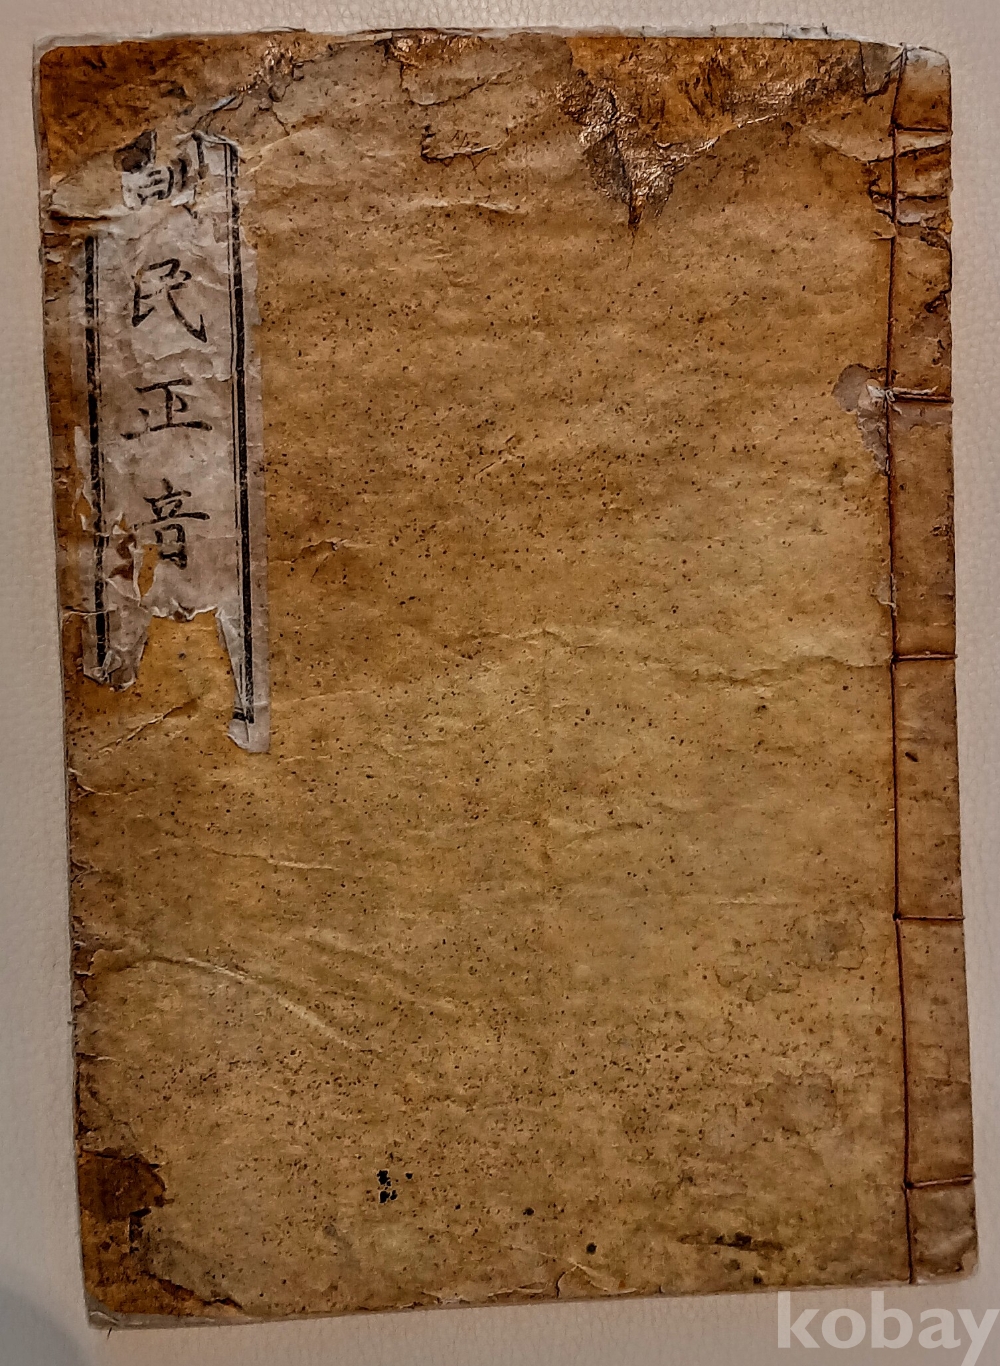 訓民正音
kobay